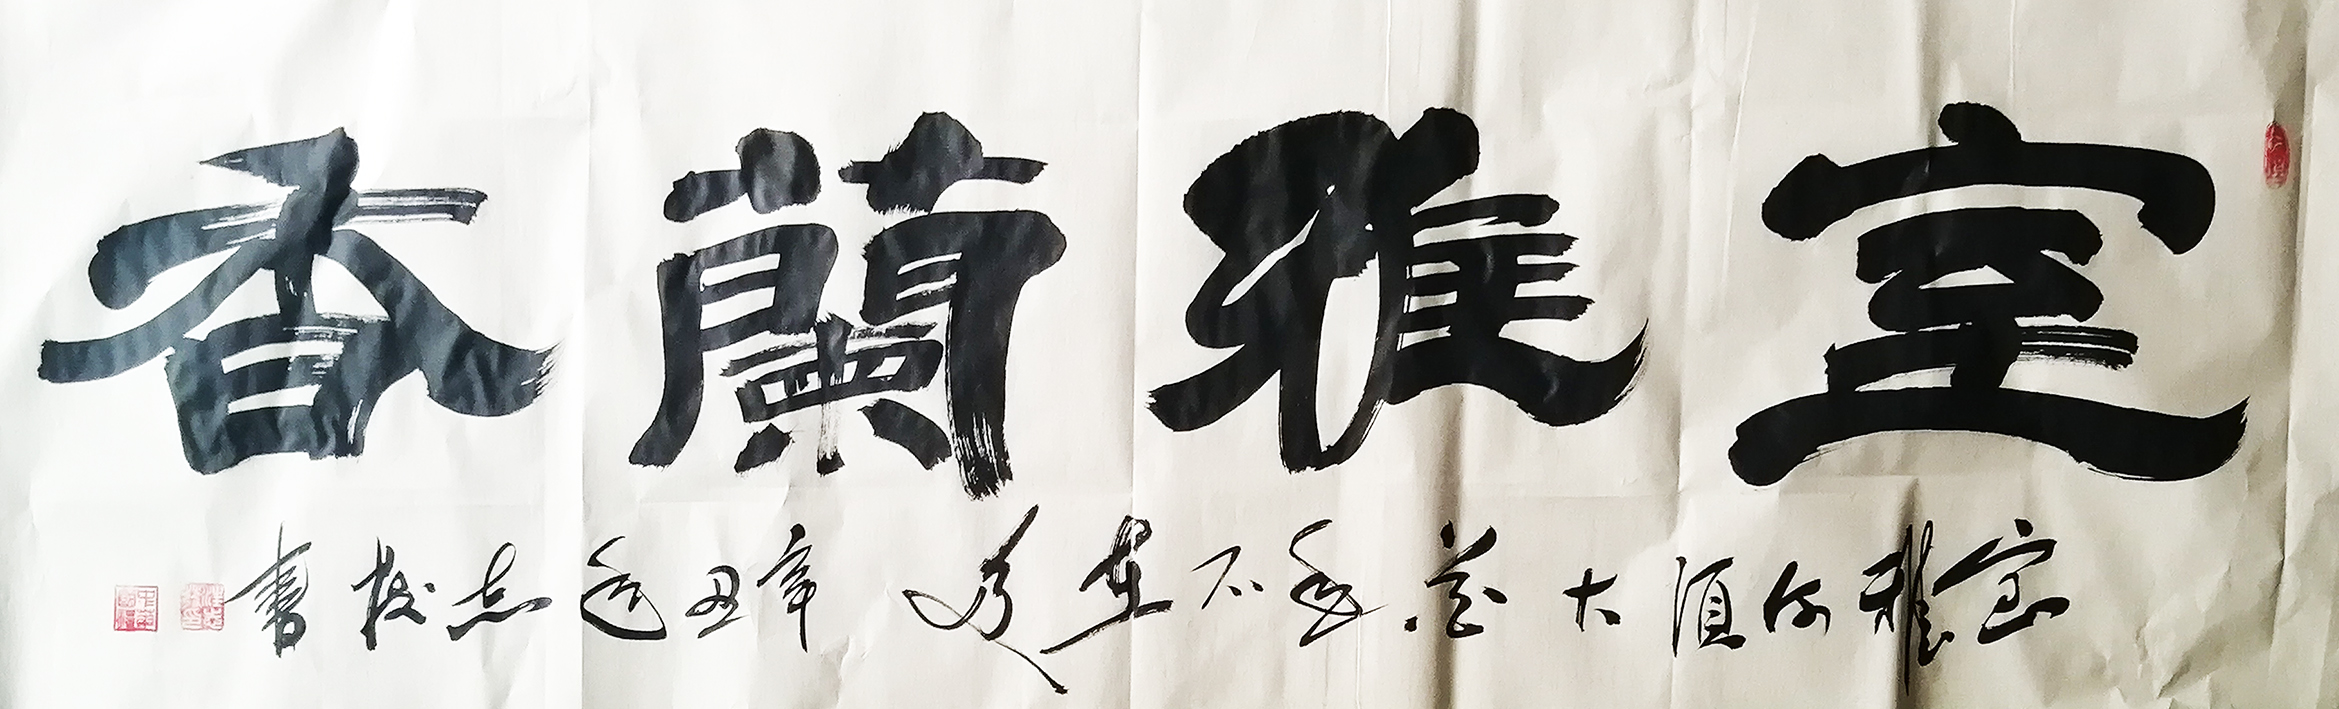 室雅蘭香
室雅何須大花香不在多 辛丑年志披書